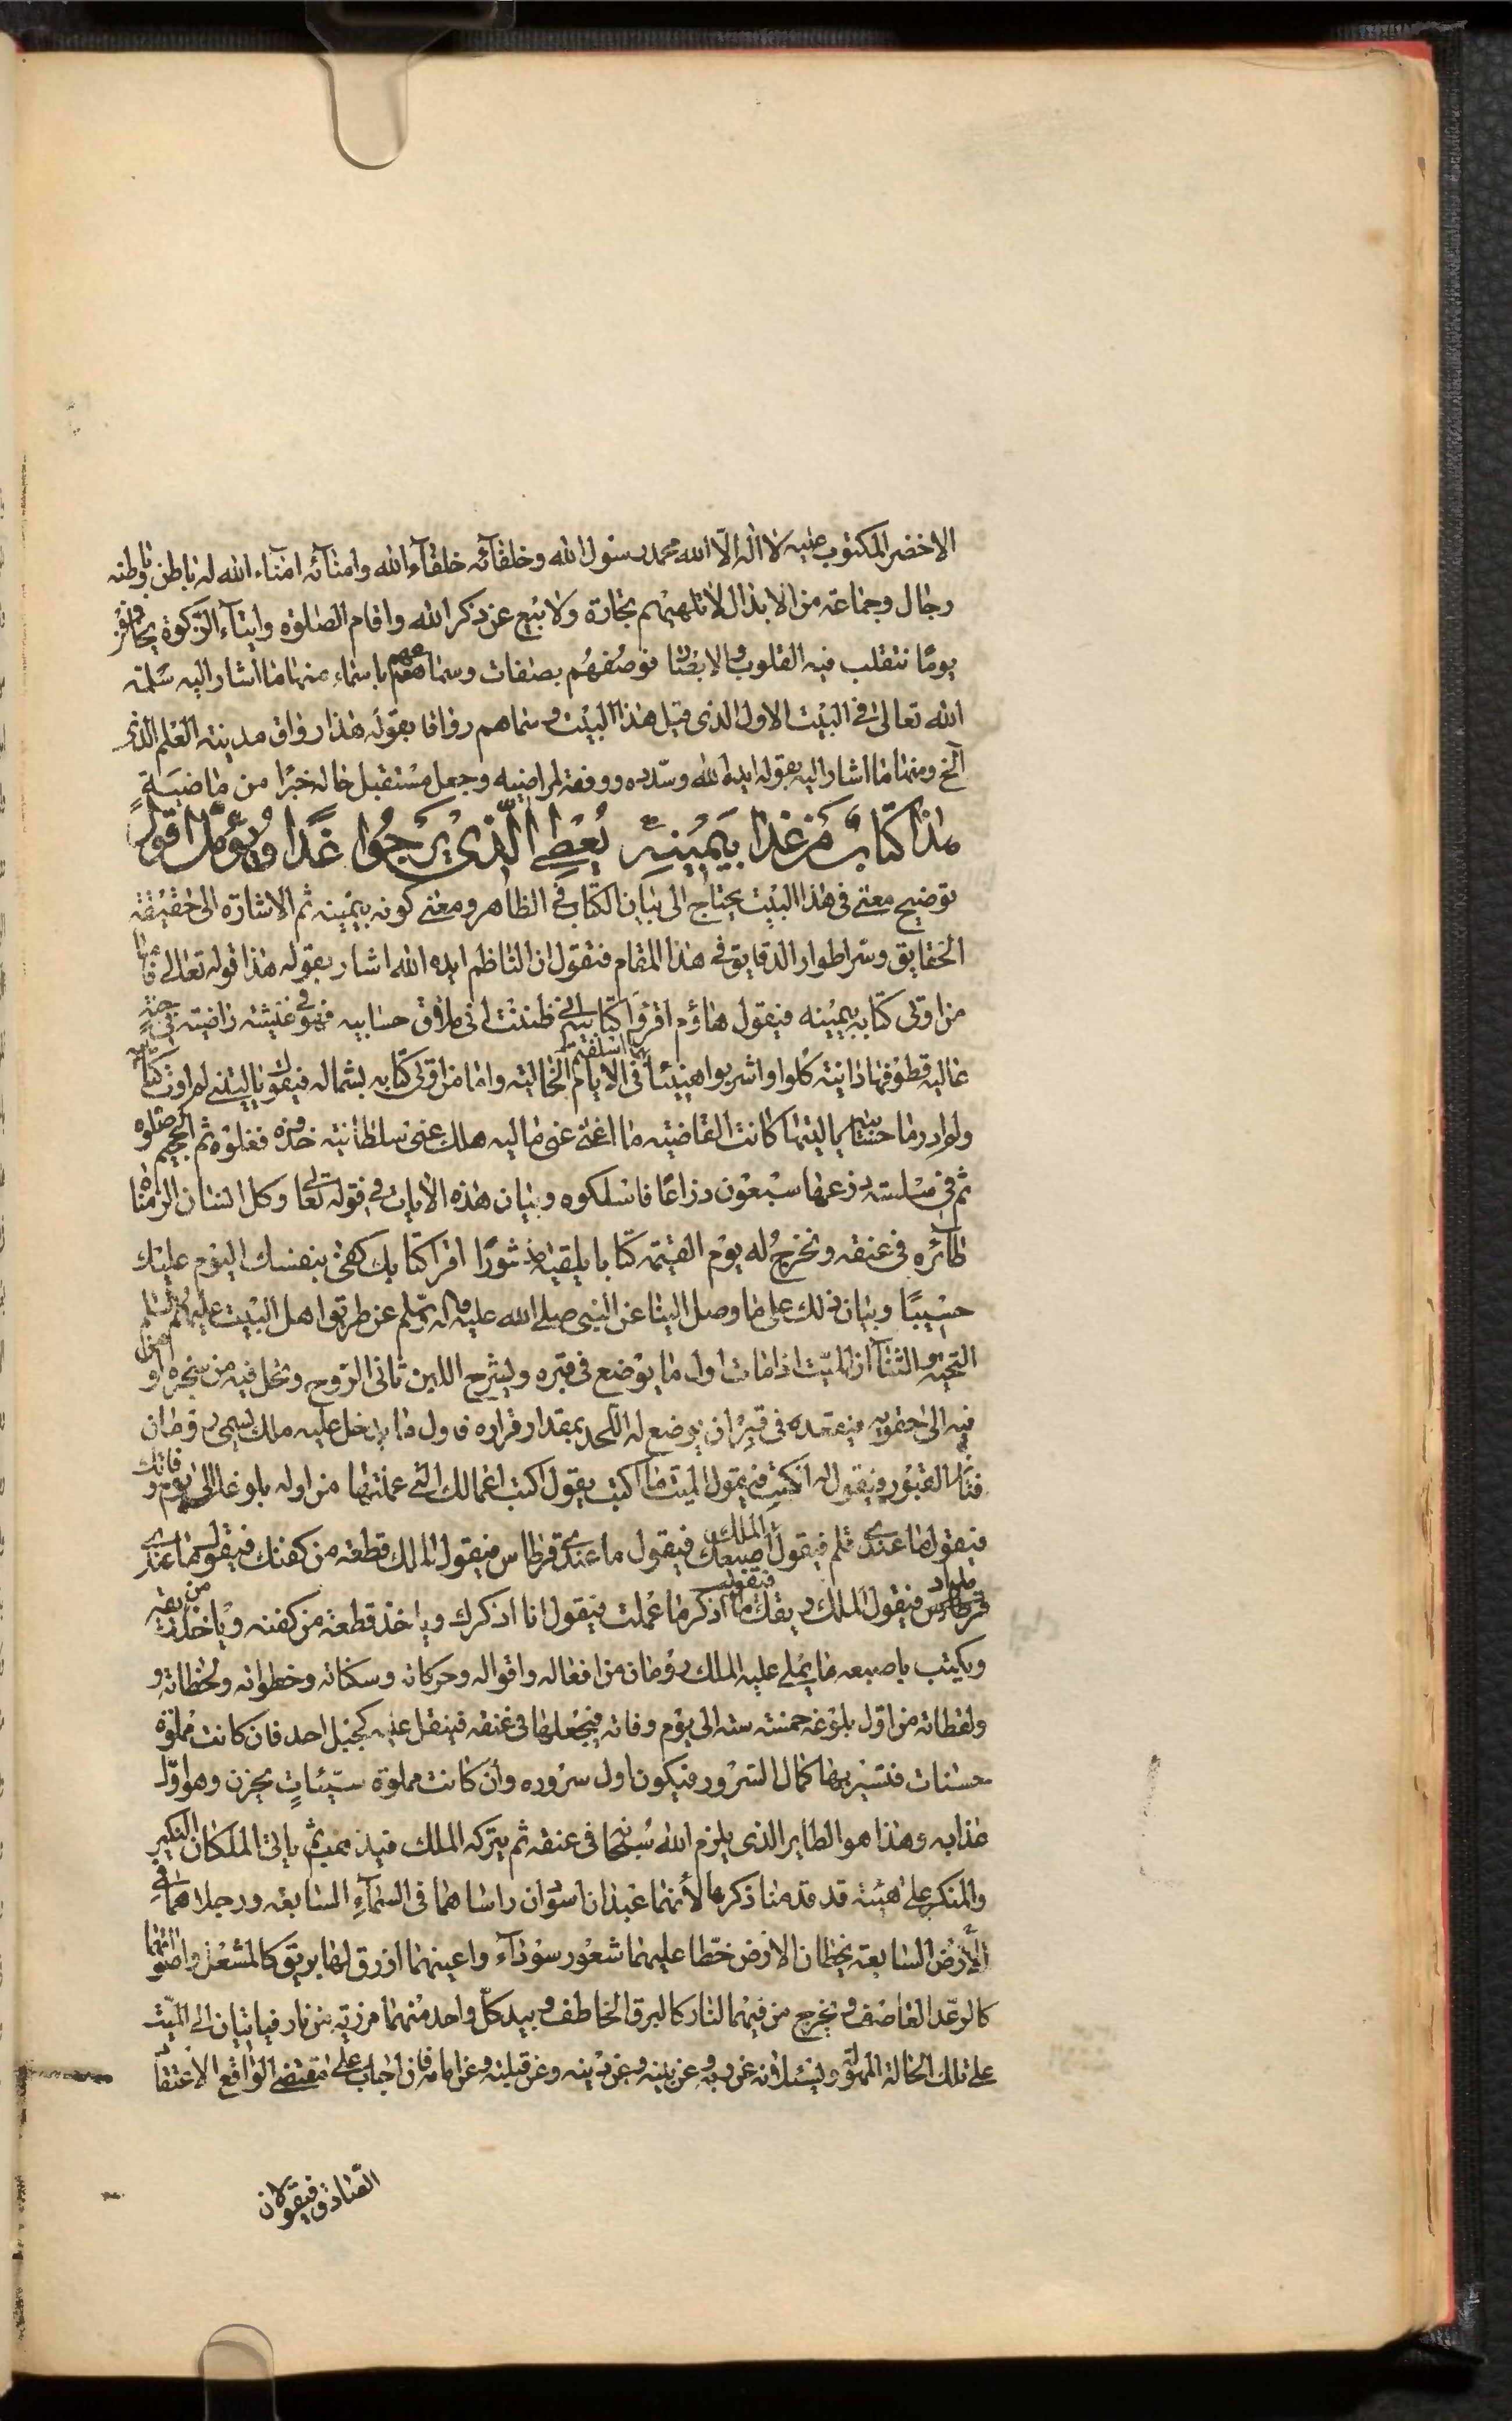 الاخضر المكتوب عليه لا اله الّا الله محمد رسول الله وخلفآئه خلفآء الله وامنآئه امنآء الله له باطن باطنه
رجال وجماعة من الابدال لا تلهيهم تجارة ولا بيع عن ذكر الله واقام الصلوة وايتآء الزكوة يخافون
يومًا تتقلب فيه القلوب والابصار فوصفهم بصفات وسماهم باسماء منها ما اشار اليه سلمه
الله تعالى في البيت الاول الذى قبل هذا البيت وسماهم رواقا بقوله هذا رواق مدينة العلم الذى
الخ ومنها ما اشار اليه بقوله ايده الله وسدده ووفقه لمراضيه وجعل مستقبل حاله خيرًا من ماضيه
هذا كتاب من غدا بيمينه يعطى الّذى يرجوا غدًا ويؤمّل اقول
توضيح معنى فى هذا البيت يحتاج الى بيان الكتاب فى الظاهر ومعنى كونه بيمينه ثم الاشارة الى حقيقة
الحقايق وسر اطوار الدقايق فى هذا المقام فنقول ان الناظم ايده الله اشار بقوله هذا قوله تعالى فاما
من اوتى كتابه بيمينه فيقول هاؤم اقرؤا كتابيه انى ظننت انى ملاق حسابيه فهو فى عيشة راضية فى جنة
عالية قطوفها دانية كلوا واشربوا هنيئًا بما اسلفتم فى الايام الخالية واما من اوتى كتابه بشماله فيقول ياليتنى لم اوت كتابيه
ولم ادر ما حسابيه ياليتها كانت القاضية ما اغنى عنى ماليه هلك عنى سلطانيه خذوه فغلوه ثم الجحيم صلوه
ثم فى سلسلة ذرعها سبعون ذراعًا فاسلكوه وبيان هذه الايات فى قوله تعالى وكل انسان الزمناه
طآئره فى عنقه ونخرج له يوم القيمة كتابا يلقيه منشورًا اقرا كتابك كفى بنفسك اليوم عليك
حسيبًا وبيان ذلك على ما وصل الينا عن النبى صلى الله عليه وآله وسلم عن طريق اهل البيت عليهم السلم
التحية والثنآء ان الميت اذا مات اول ما يوضع فى قبره ويشرج اللبن تاتى الروح وتدخل فيه من
فيه الى حقويه فيقعده فى قبره ان يوضع له اللحد بمقدار قراره فاول ما يدخل عليه ملك يسمى رومان
فتان القبور فيقول له اكتب فيقول الميت ما اكتب يقول اكتب اعمالك التى عملتها من اوله بلوغك الى يوم وفاتك
فيقول ما عندى قلم فيقول الملك اصبعك فيقول ما عندى قرطاس فيقول الملك قطعة من كفنك فيقول ما عندى
مداد فيقول الملك ريقك فيقول ما اذكر ما عملت فيقول انا اذكرك وياخذ قطعة من كفنه وياخذ من ريقه
ويكتب باصبعه ما يملى عليه الملك رومان من افعاله واقواله وحركاته وسكناته وخطواته ولحظاته و
ولفظاته من اول بلوغه خمسة سنة الى يوم وفاته فيجعلها فى عنقه فيثقل عليه كجبل احد فان كانت مملوة
حسنات فتسير بها كمال السرور فيكون اول سروره وان كانت مملوة سيّئاتٍ يحزن وهو اوّل
عذابه وهذا هو الطاير الذى يلزم الله سبحانه فى عنقه ثم يتركه الملك فيذهب ثم ياتى الملكان النكير
والمنكر على هيئة قد قدمنا ذكرها لأنهما عبدان اسودان راساهما فى السمآء السابعة ورجلاهما فى
الأرض السابعة يخطان الارض خطّا عليهما شعور سودآء واعينهما ازرق لها بريق كالمشعل واصواتهما
كالرعد القاصف ويخرج من فيهما النار كالبرق الخاطف وبيد كلّ واحد منهما مرزبة من نار فياتيان الى الميّت
على تلك الحالة المهولة ويسئلانه عن ربه وعن نبيه وعن دينه وعن قبلته وعن امامه فان اجاب على مقتضى الواقع الاعتقاد
الصادق فيقولان